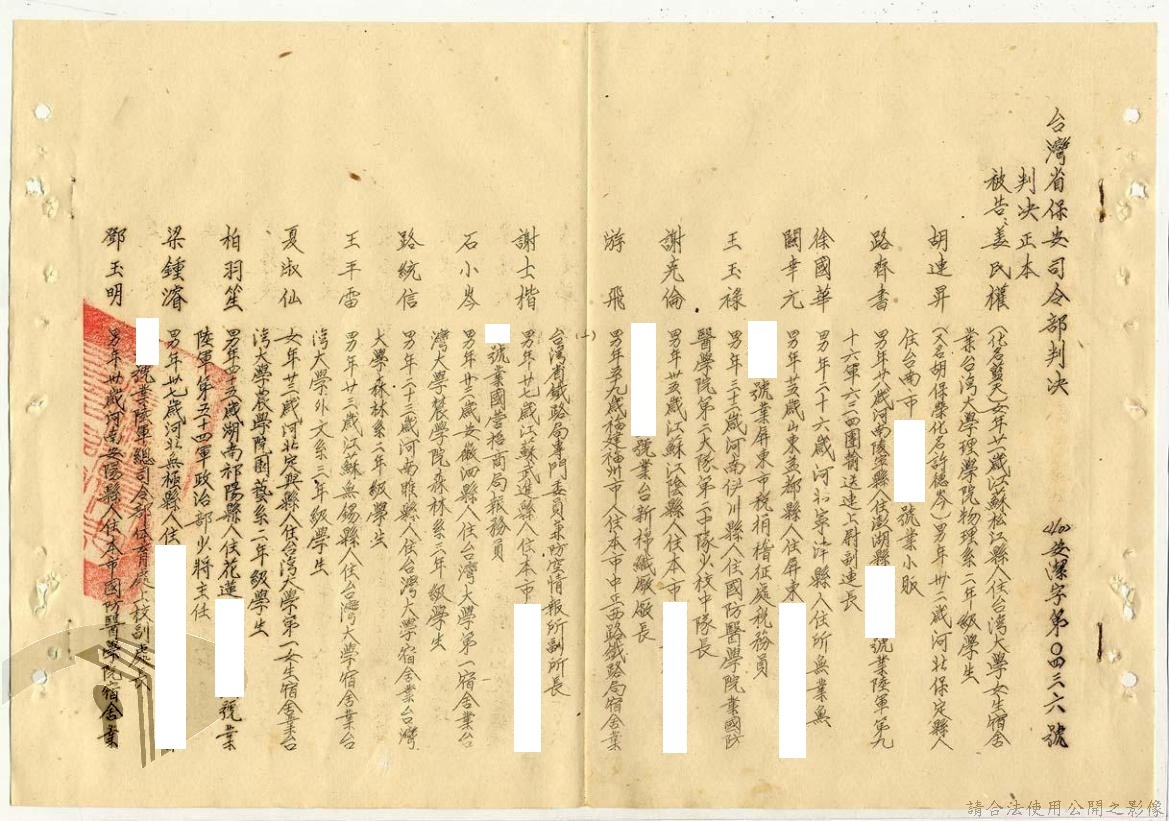 台灣省保安司令部判决
(41)安潔字第〇四三六號
判决正本
被告姜民權
(化名藍天)女年廿一歲江蘇松江縣人住台灣大學女生宿舍
業台灣大學理學院物理系二年級學生
胡連昇
(又名胡保學化名許德岑)男年卅二歲河北保定縣人
住台南市
號業小販
路齊書
男年廿八歲河南陵寧縣人住澎湖縣
號業陸軍第九
十六軍六三四團輸送連上尉副連長
徐國華
男年二十六歲河北寧津縣人住所無業無
閻幸元
男年廿五歲山東益都縣人住屏東
號業屏東市稅捐稽征處稅務員
王玉祿
男年三十二歲河南伊川縣人住國防醫學院業國防
醫學院第二大隊第二中隊少校中隊長
謝克倫
男年卅五歲江蘇江陰縣人住本市
號業台新棉織廠廠長
游飛
男年五十九歲福建福州市人住本市中正西路鐵路局宿舍業
(一)
台灣省鐵路局專門委員兼防空情報所副所長
謝士楷
男年廿七歲江蘇武進縣人住本市
號業國營招商局報務員
石小岑
男年廿三歲安徽泗縣人住台灣大學第一宿舍業台
灣大學農學院森林系三年級學生
路統信
男年二十三歲河南睢縣人住台灣大學宿舍業台灣
大學森林系二年級學生
王平雷
男年廿三歲江蘇無錫縣人住台灣大學宿舍業台
灣大學外文系三年級學生
夏淑仙
女年廿三歲河北定興縣人住台灣大學第一女生宿舍業台
灣大學農學院園藝系二年級學生
柏羽笙
男年四十五歲湖南祁陽縣人住花蓮
號業
陸軍第五十四軍政治部少將主任
梁鍾濬
男年卅七歲河北無極縣人住
號業陸軍總司令部体育處上校訓處長
鄧玉明
男年廿歲河南安陽縣人住本市國防醫學院宿舍業
請合法使用公開之影像